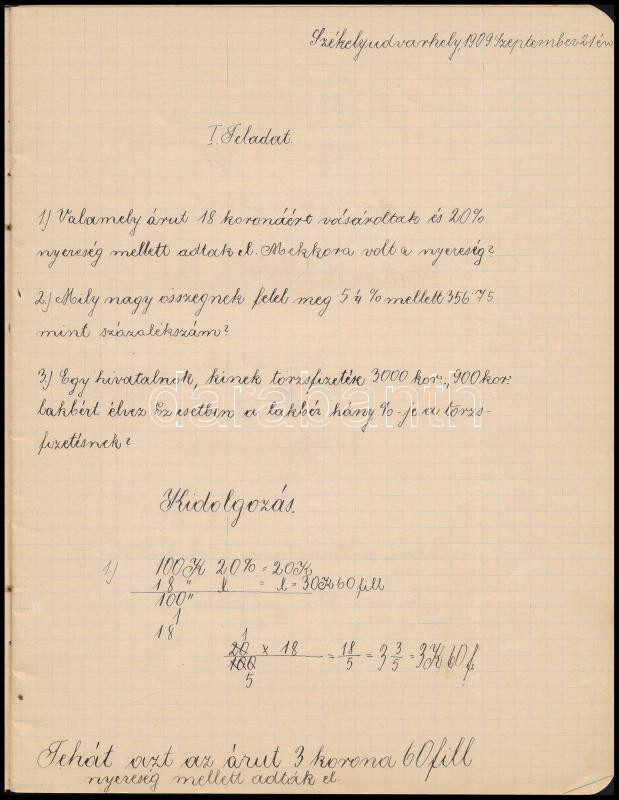 Székelyudvarhely, 1909 Szeptember 21 én
I. Feladat.
1) Valamely árut 18 koronáért vásároltak és 20%
nyereség mellett adtak el. Mekkora volt a nyereség?
2) Mily nagy összegnek felel meg 5 4 % mellett 356 75
mint százalékszám?
3) Egy hivatalnok, kinek törzsfizetése 3000 kor., 900 kor.
lakbért élvez Ez esetben a lakbér hány %-je a törzs-
fizetésnek?
darabanth
Kidolgozás.
1) 100K 20% = 20K
18 " x = x = 30K 60 fill
100"
1
18
1
20 x 18 = 18/5 = 3 3/5 = 3K 60 f
100
5
Tehát azt az árut 3 korona 60 fill
nyereség mellett adták el.